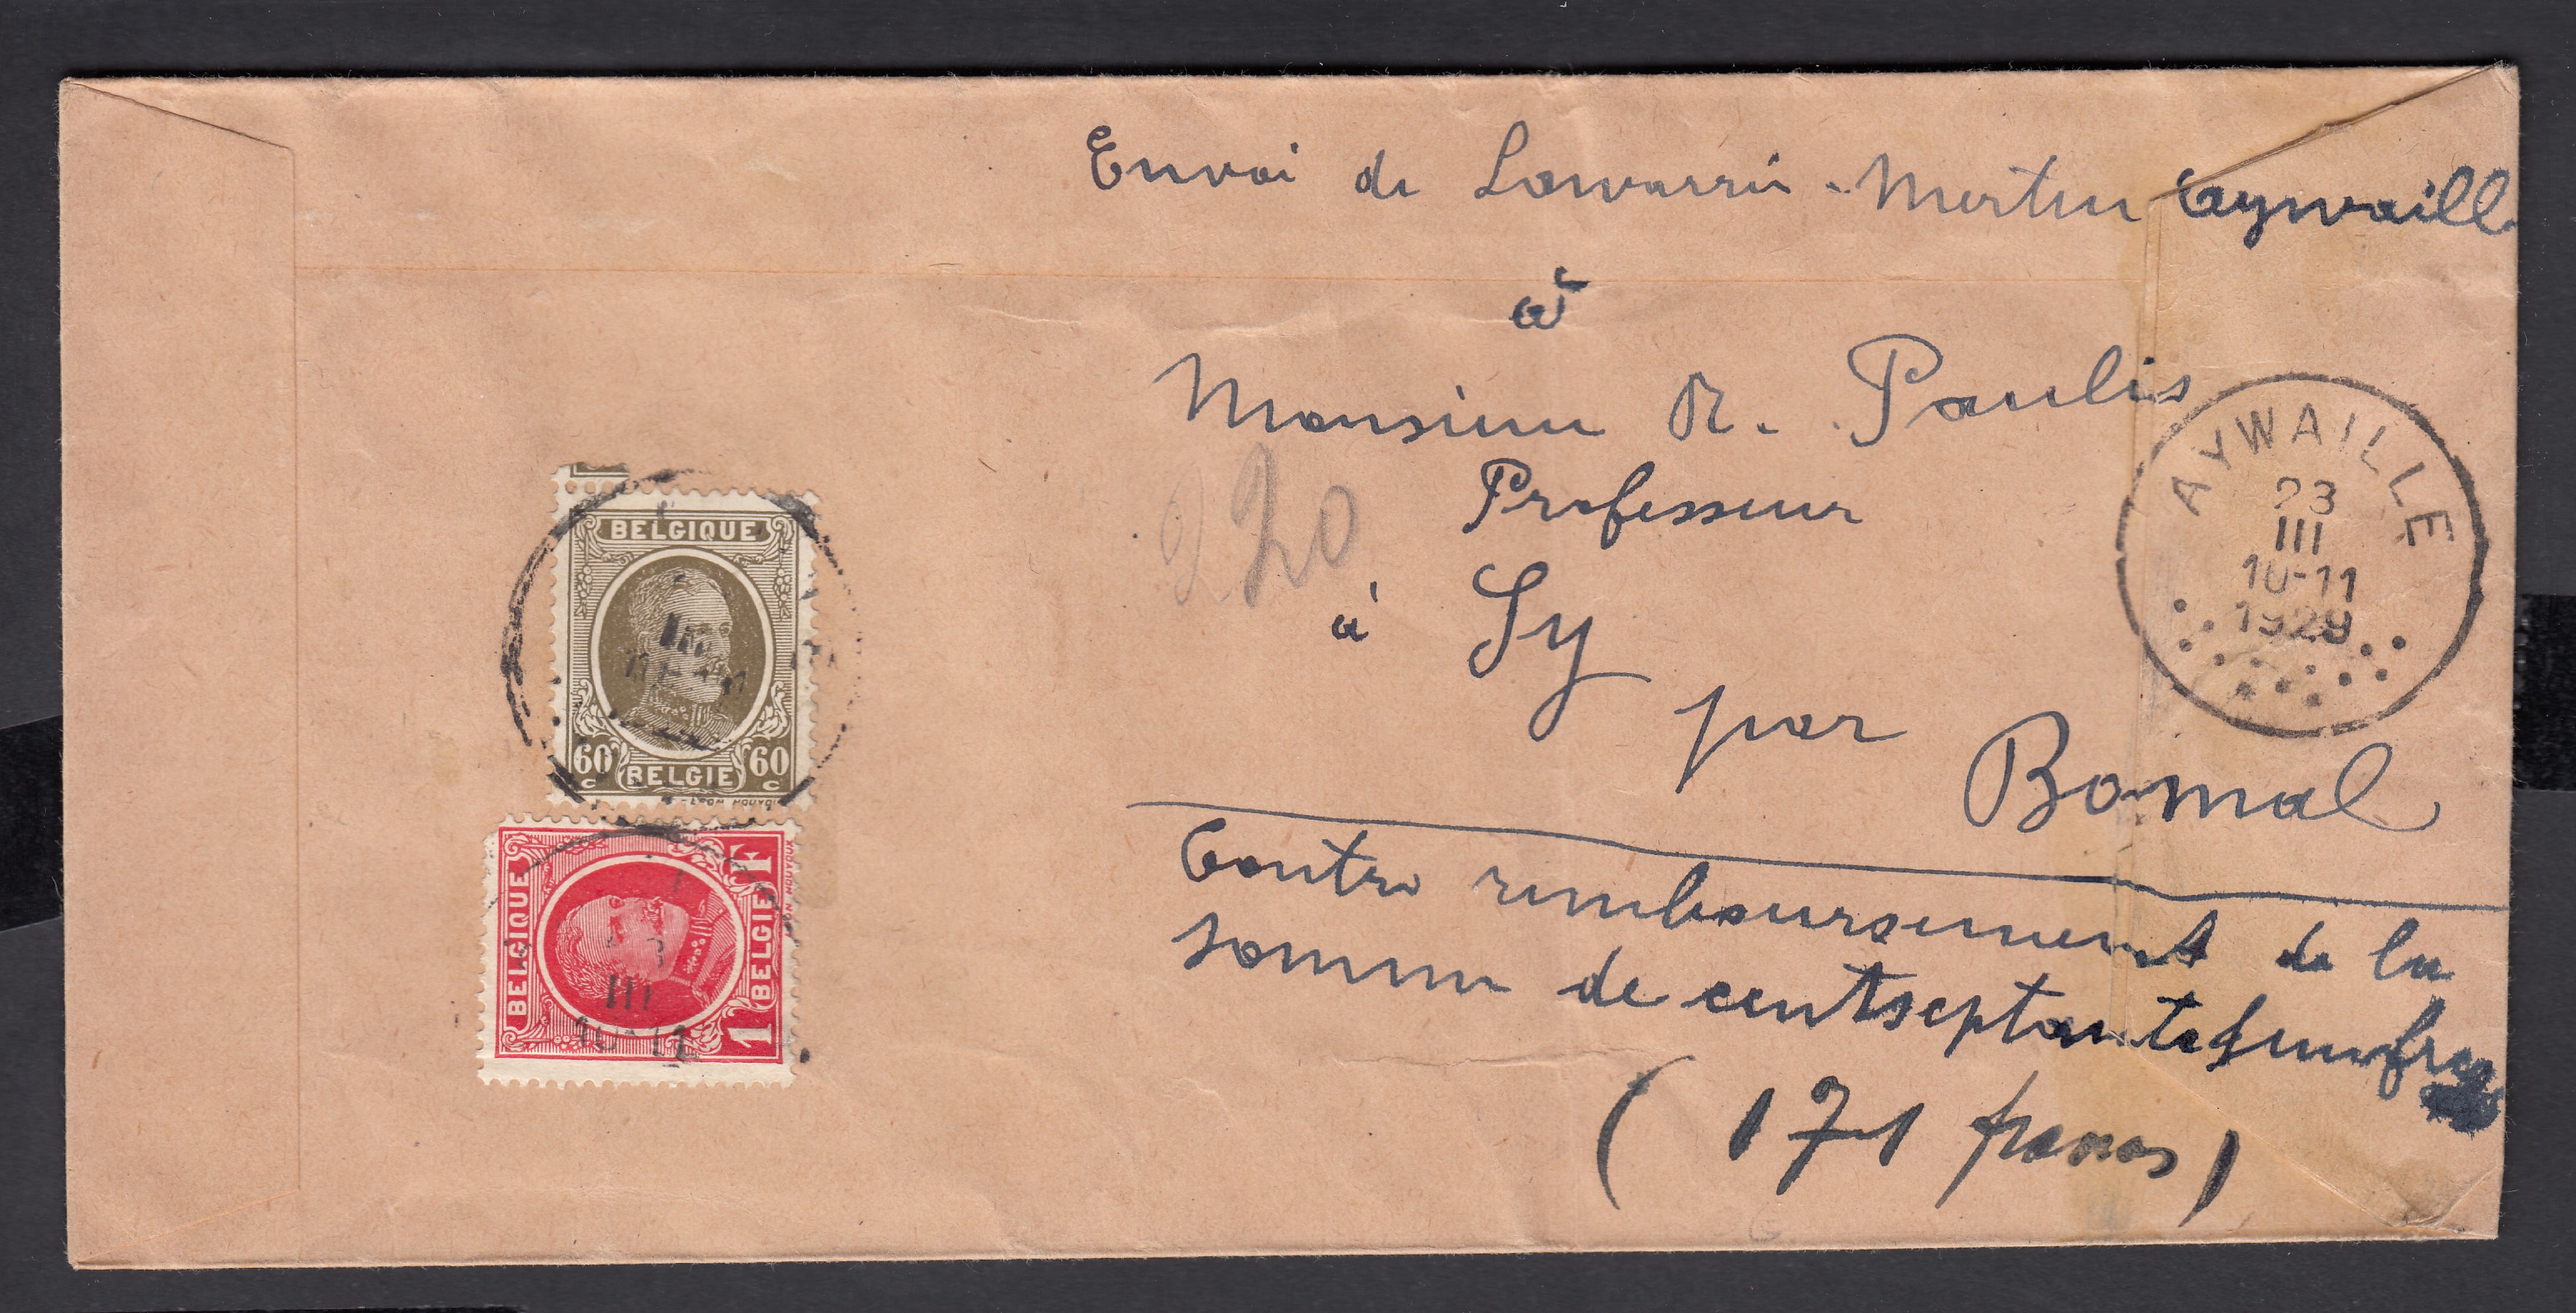 Envoi de Lawarrée-Merten Aywaille
à
Monsieur R. Paulis
Professeur
à Sy
par
Bomal
Contre remboursement de la
somme de cent septante
(171 francs)
220
AYWAILLE
23
III
10-11
1929
BELGIQUE
60 c BELGIE 60 c
BELGIQUE
1 F BELGIE
III
10-11